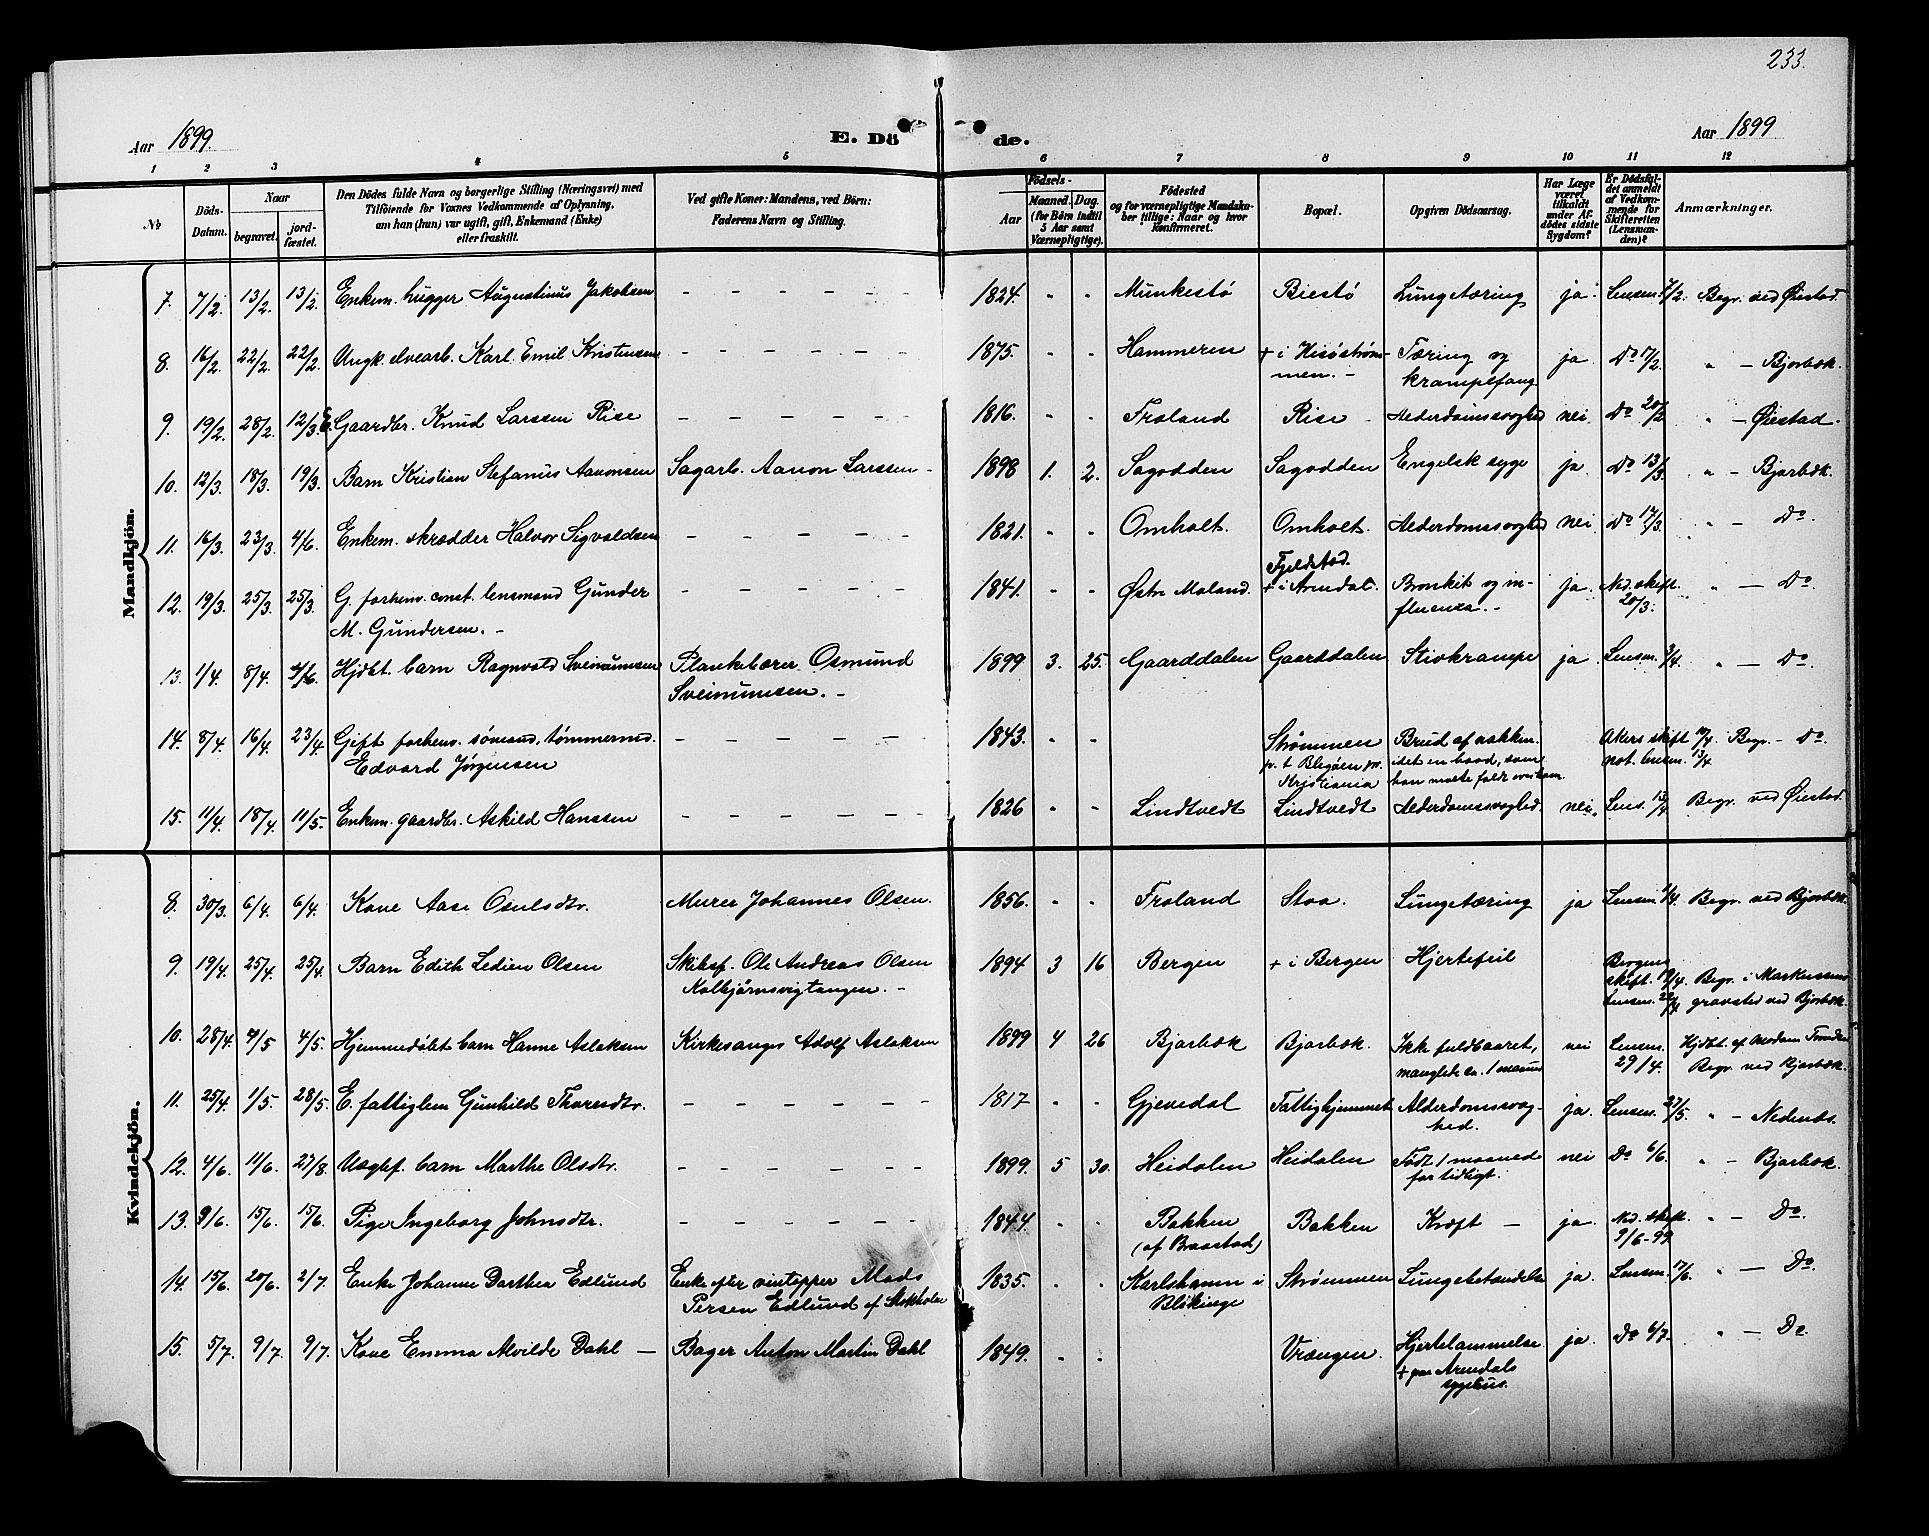 233.
Aar 1899.
E. Dö de.
Aar 1899
1 2 3 4 5 6 7 8 9 10 11 12
№
Döds-Datum.
Naar
begravet.
jord-fæstet.
Den Dödes fulde Navn og borgerlige Stilling (Næringsvei) med
Tilföiende for Voxnes Vedkommende af Oplysning,
om han (hun) var ugift, gift, Enkemand (Enke)
eller fraskilt.
Ved gifte Koner: Mandens, ved Börn:
Faderens Navn og Stilling.
Födsels-
Aar
Maaned. Dag.
(for Börn indtil
5 Aar samt
Værnepligtige).
Födested
og for værnepligtige Mandska-
ber tillige: Naar og hvor
Konfirmeret.
Bopæl.
Opgiven Dödsaarsag.
Har Læge
været
tilkaldt
under Af-
dödes sidste
Sygdom?
Er Dödsfal-
det anmeldt
af Vedkom-
mende for
Skifteretten
(Lensman-
den)?
Anmærkninger.
Mandkjön.
7. 7/2. 13/2. 13/2. Enkem. hugger Augustinus Jakobsen – – – – – 1824. " " Munkestø Biestø Lungetæring ja. Lensm. 7/2. Begr. ved Øiestad.
8. 16/2. 22/2. 22/2. Ungk. elvearb. Karl Emil Kristensen – – – – – 1875. " " Hammeren + i Hisøstrøm-
men. – Tæring og
krampefang ja. Do 17/2. " – Bjorbæk.
9. 19/2. 28/2. 12/3. Gaardbr. Knud Larssen Rise – – – – – 1816. " " Froland Rise Alderdomssvaghed nei. Do 20/2 " – Øiestad.
10. 12/3. 18/3. 19/3. Barn Kristian Stefanus Aanonsen Sagarb. Aanon Larssen – 1898 1. 2. Sagodden Sagodden Engelsk syge ja. Do 13/3. " – Bjorbæk.
11. 16/3. 23/3. 4/6. Enkem. skrædder Halvor Sigvaldsen – – – – – 1821. " " Omholt. Omholt. Alderdomssvaghed nei. Do 17/3. " – Do.
12. 19/3. 25/3. 25/3. G. forhenv. const. lensmand Gunder
M. Gundersen. – – – – – – 1841. " " Østre Moland. Fjeldstad.
+ i Arendal. Bronkit og in-
fluenza. – ja. Ned. skift.
20/3. " – Do
13. 1/4. 8/4. 4/6. Hjdbt. barn Ragnvald Sveinumsen Plankebærer Osmund
Sveinumsen. – 1899 3. 25. Gaarddalen Gaarddalen Stivkrampe ja. Lensm. 3/4. " – Do.
14. 8/4. 16/4. 23/4. Gift forhenv. sømand, tømmermd.
Edvard Jørgensen – – – – – 1843. " " Strømmen
Kristiania Brud af nakken.
idet en baad, som
han malte faldt over ham. Akers skift 10/4.
not. lensm. 13/4 Begr. – Do.
15. 11/4. 18/4. 11/5. Enkem. gaardbr. Askild Hanssen – – – – – 1826 " " Lindtvedt Lindtvedt Alderdomssvaghed. nei. Lens. 13/4 Begr. ved Øiestad.
Kvindekjön.
8. 30/3. 6/4. 6/4. Kone Aase Osulsdtr. Murer Johannes Olsen. 1856. " " Froland Stoa Lungetæring ja Lensm. 1/4. Begr. ved Bjorbæk.
9. 19/4. 25/4. 25/4 Barn Edith Ledien Olsen Skibsf. Ole Andreas Olsen
Kolbjørnsvigtangen. – 1894 3 16 Bergen + i Bergen Hjertefeil Bergens
skift. 19/4.
Lensm. 22/4 Begr. i Markussens
gravsted ved Bjorbæk.
10. 28/4. 4/5 4/5. Hjemmedøbt barn Hanne Aslaksen Kirkesanger Adolf Aslaksen 1899 4 26 Bjorbæk Bjorbæk. Ikke fuldbaaret,
manglede ca. 1 maaned nei Lensm.
29/4. Hjdbt. af
Begr. ved Bjorbæk.
11. 25/4. 1/5. 28/5. E. fattiglem Gunhild Thoresdtr. – – – – – 1817 " " Gjevedal Fattighjemmet Alderdomssvag-
hed. ja. Lensm. 27/5. " – Nedenes.
12. 4/6. 11/6. 27/8. Uægtef. barn Marthe Olsdtr. – – – – – 1899. 5 30. Heidalen Heidalen Født 1 maaned
for tidligt. nei Do 6/6. " – Bjorbæk.
13. 9/6. 15/6. 15/6. Pige Ingeborg Johnsdtr. – – – – – 1844. " " Bakken
(af Braastad) Bakken Kræft – ja. Ned. skift.
9/6-99 " – Do.
14. 15/6. 20/6. 2/7. Enke Johanne Dorthea Edlund Enke efter vintapper Mads
Persen Edlund af Stokholm 1835. " " Karlshamn i
Blekinge Strømmen Lungebetændelse ja. Lensm. 17/6. " – Do.
15. 5/7. 9/7. 9/7. Kone Emma Alvilde Dahl – Bager Anton Martin Dahl 1849. " " Vrængen. Hjertelammelse
+ paa Arendals
sygehus. ja. Do 6/7. " – Do.